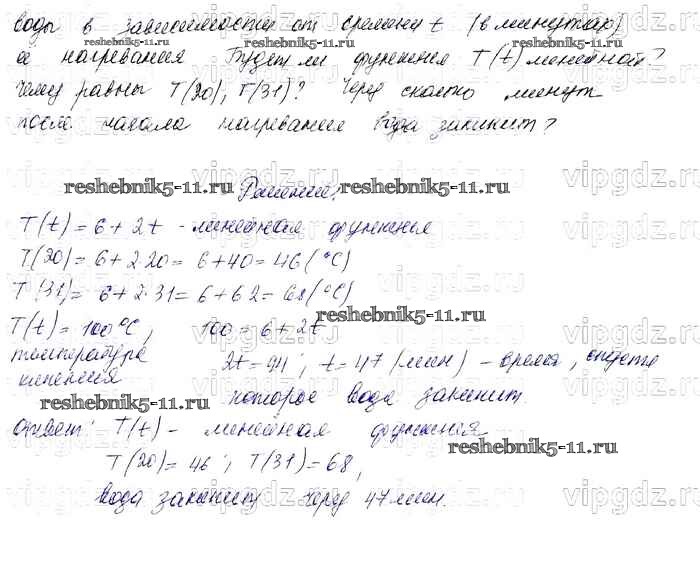 воды в зависимости от времени t (в минутах)
ее нагревания Будет ли функция T(t) линейной?
Чему равны T(20), T(31)? Через сколько минут
после начала нагревания вода закипит?
Решение:
T(t) = 6 + 2t - линейная функция
T(20) = 6 + 2·20 = 6 + 40 = 46 (°C)
T(31) = 6 + 2·31 = 6 + 62 = 68 (°C)
T(t) = 100°C, 100 = 6 + 2t
температура 2t = 94; t = 47 (мин) - время, спустя
кипения которое вода закипит
Ответ: T(t) - линейная функция
T(20) = 46; T(31) = 68,
вода закипит через 47 мин.
reshebnik5-11.ru
reshebnik5-11.ru
reshebnik5-11.ru
reshebnik5-11.ru
reshebnik5-11.ru
reshebnik5-11.ru
vipgdz.ru
vipgdz.ru
vipgdz.ru
vipgdz.ru
vipgdz.ru
vipgdz.ru